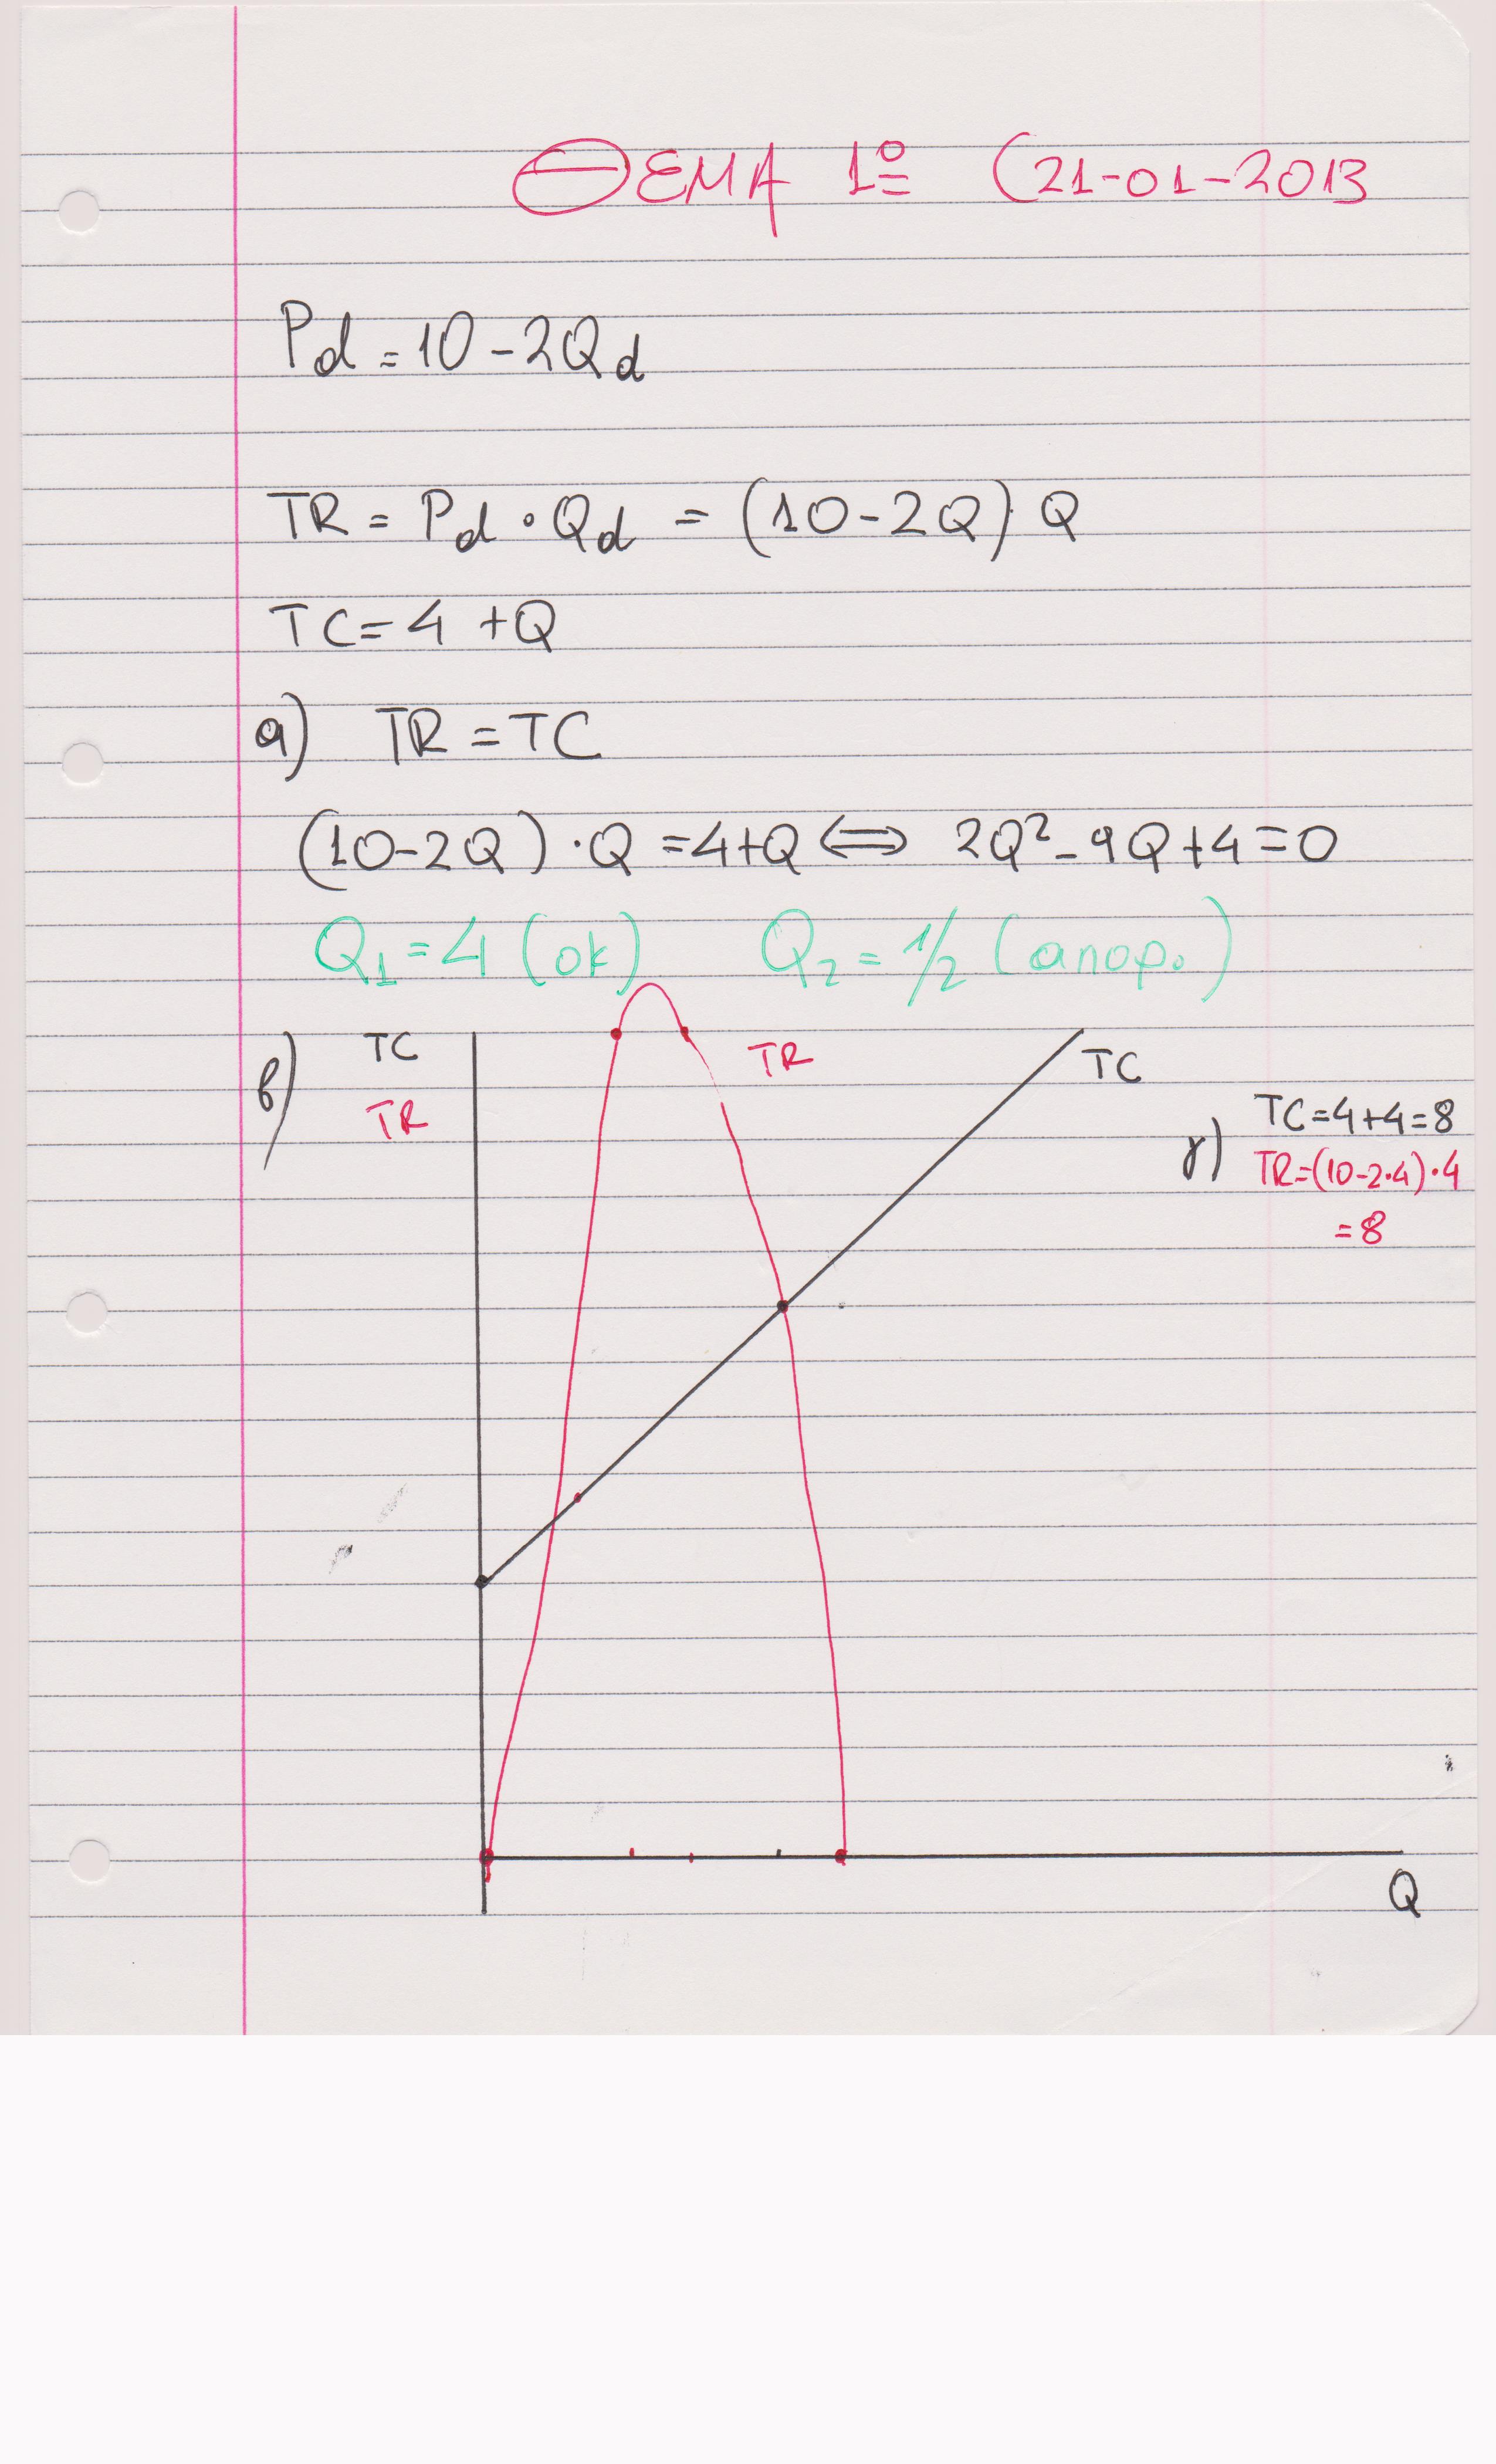 ΘΕΜΑ 1º (21-01-2013
Pd = 10 - 2Qd
TR = Pd · Qd = (10 - 2Q) Q
TC = 4 + Q
α) TR = TC
(10-2Q) · Q = 4+Q ⇔ 2Q² - 9Q + 4 = 0
Q₁ = 4 (ok) Q₂ = 1/2 (απορ.)
β) TC
TR
TR
TC
γ) TC = 4+4 = 8
TR = (10-2·4)·4
= 8
Q